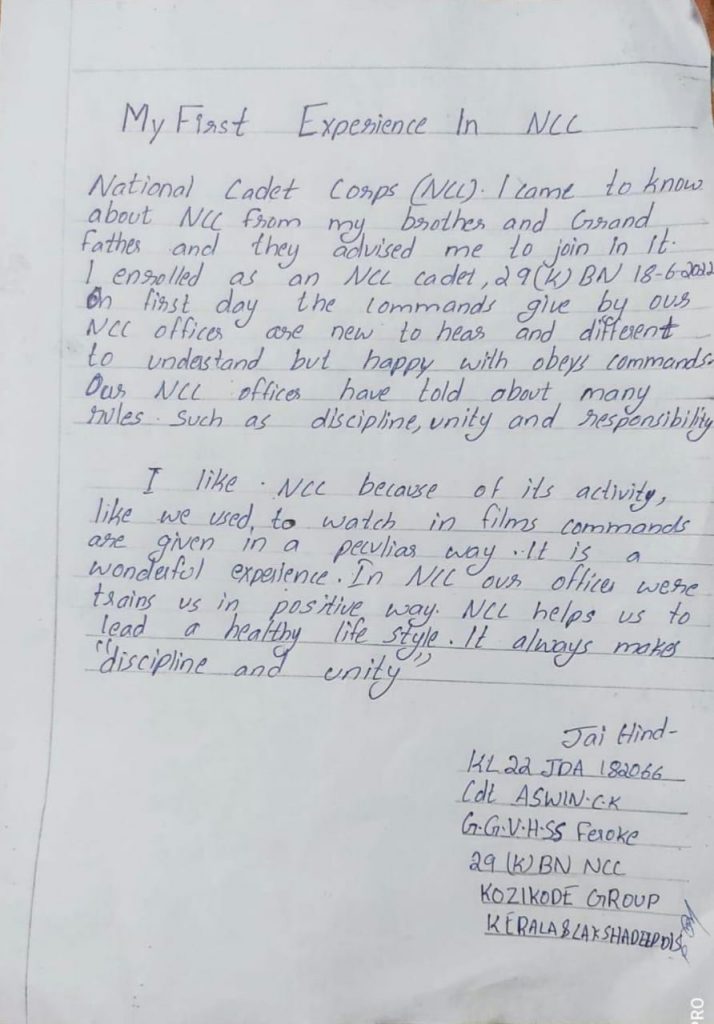 My First Experience In NCC
National Cadet Corps (NCC). I came to know
about NCC from my brother and Grand
father and they advised me to join in it.
I enrolled as an NCC cadet, 29(K) BN 18-6-2022
On first day the commands give by our
NCC officer are new to hear and different
to understand but happy with obeys commands.
Our NCC officer have told about many
rules. Such as discipline, unity and responsibility
I like. NCC because of its activity,
like we used, to watch in films commands
are given in a peculiar way. It is a
wonderful experience. In NCC our officer were
trains us in positive way. NCC helps us to
lead a healthy life style. It always makes
"discipline and unity"
Jai Hind-
KL22 JDA 182066
Cdt ASWIN.C.K
G.G.V.H.SS Feroke
29 (K) BN NCC
KOZIKODE GROUP
KERALA & LAKSHADEEP
PRO